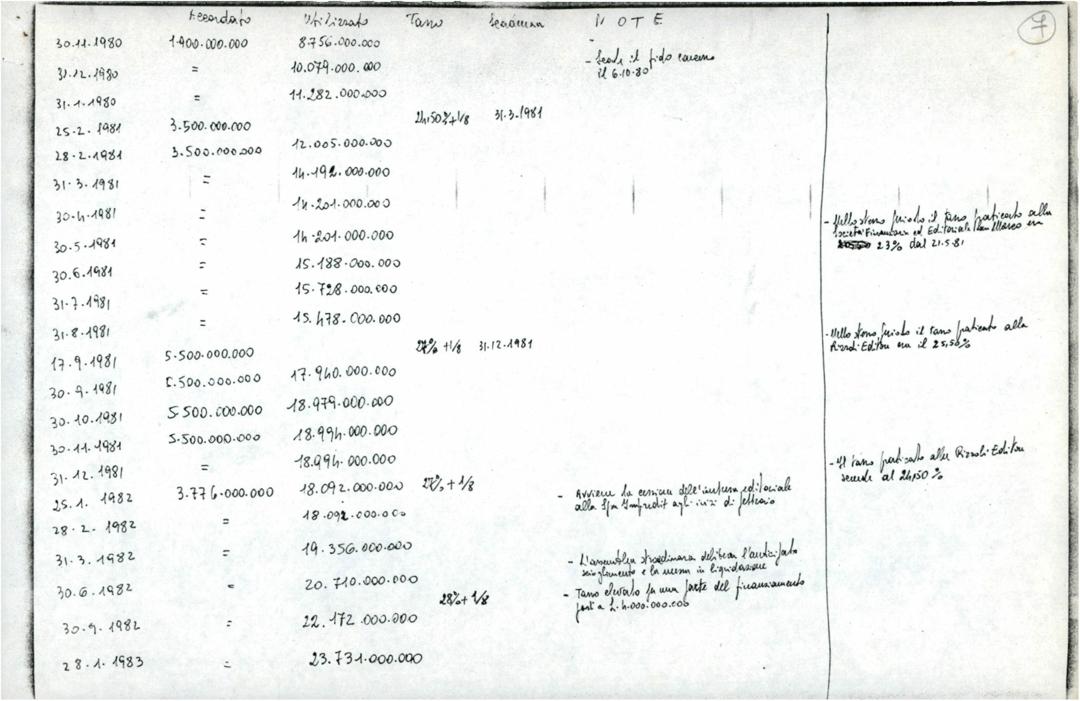 Accordato Utilizzato Tasso Scadenza NOTE 7
30.11.1980 1.400.000.000 8.756.000.000 -
31.12.1980 = 10.079.000.000 - Scade il fido
il 6.10.80
31.1.1980 = 11.282.000.000
25.2.1981 3.500.000.000 24,50%+1/8 31.3.1981
28.2.1981 3.500.000.000 12.005.000.000
31.3.1981 = 14.192.000.000
30.4.1981 = 14.201.000.000 - Nello stesso periodo il tasso praticato alla
Società Finanziaria ed Editoriale San Marco era
30.5.1981 = 14.201.000.000 23% dal 21.5.81
30.6.1981 = 15.188.000.000
31.7.1981 = 15.728.000.000
31.8.1981 = 15.478.000.000 - Nello stesso periodo il tasso praticato alla
Rizzoli Editore era il 25,50%
17.9.1981 5.500.000.000 27% +1/8 31.12.1981
30.9.1981 5.500.000.000 17.940.000.000
30.10.1981 5.500.000.000 18.979.000.000
30.11.1981 5.500.000.000 18.994.000.000
31.12.1981 = 18.994.000.000 - Il tasso praticato alla Rizzoli Editore
scende al 24,50 %
25.1.1982 3.776.000.000 18.092.000.000 27% + 1/8 - Avviene la cessione dell'impresa editoriale
alla Spa Impredit agli inizi di febbraio
28.2.1982 = 18.092.000.000
31.3.1982 = 19.356.000.000 - L'assemblea straordinaria delibera l'anticipato
scioglimento e la messa in liquidazione
30.6.1982 = 20.710.000.000 - Tasso elevato su una parte del finanziamento
28%+ 1/8 pari a L. 4.000.000.000
30.9.1982 = 22.172.000.000
28.1.1983 = 23.731.000.000